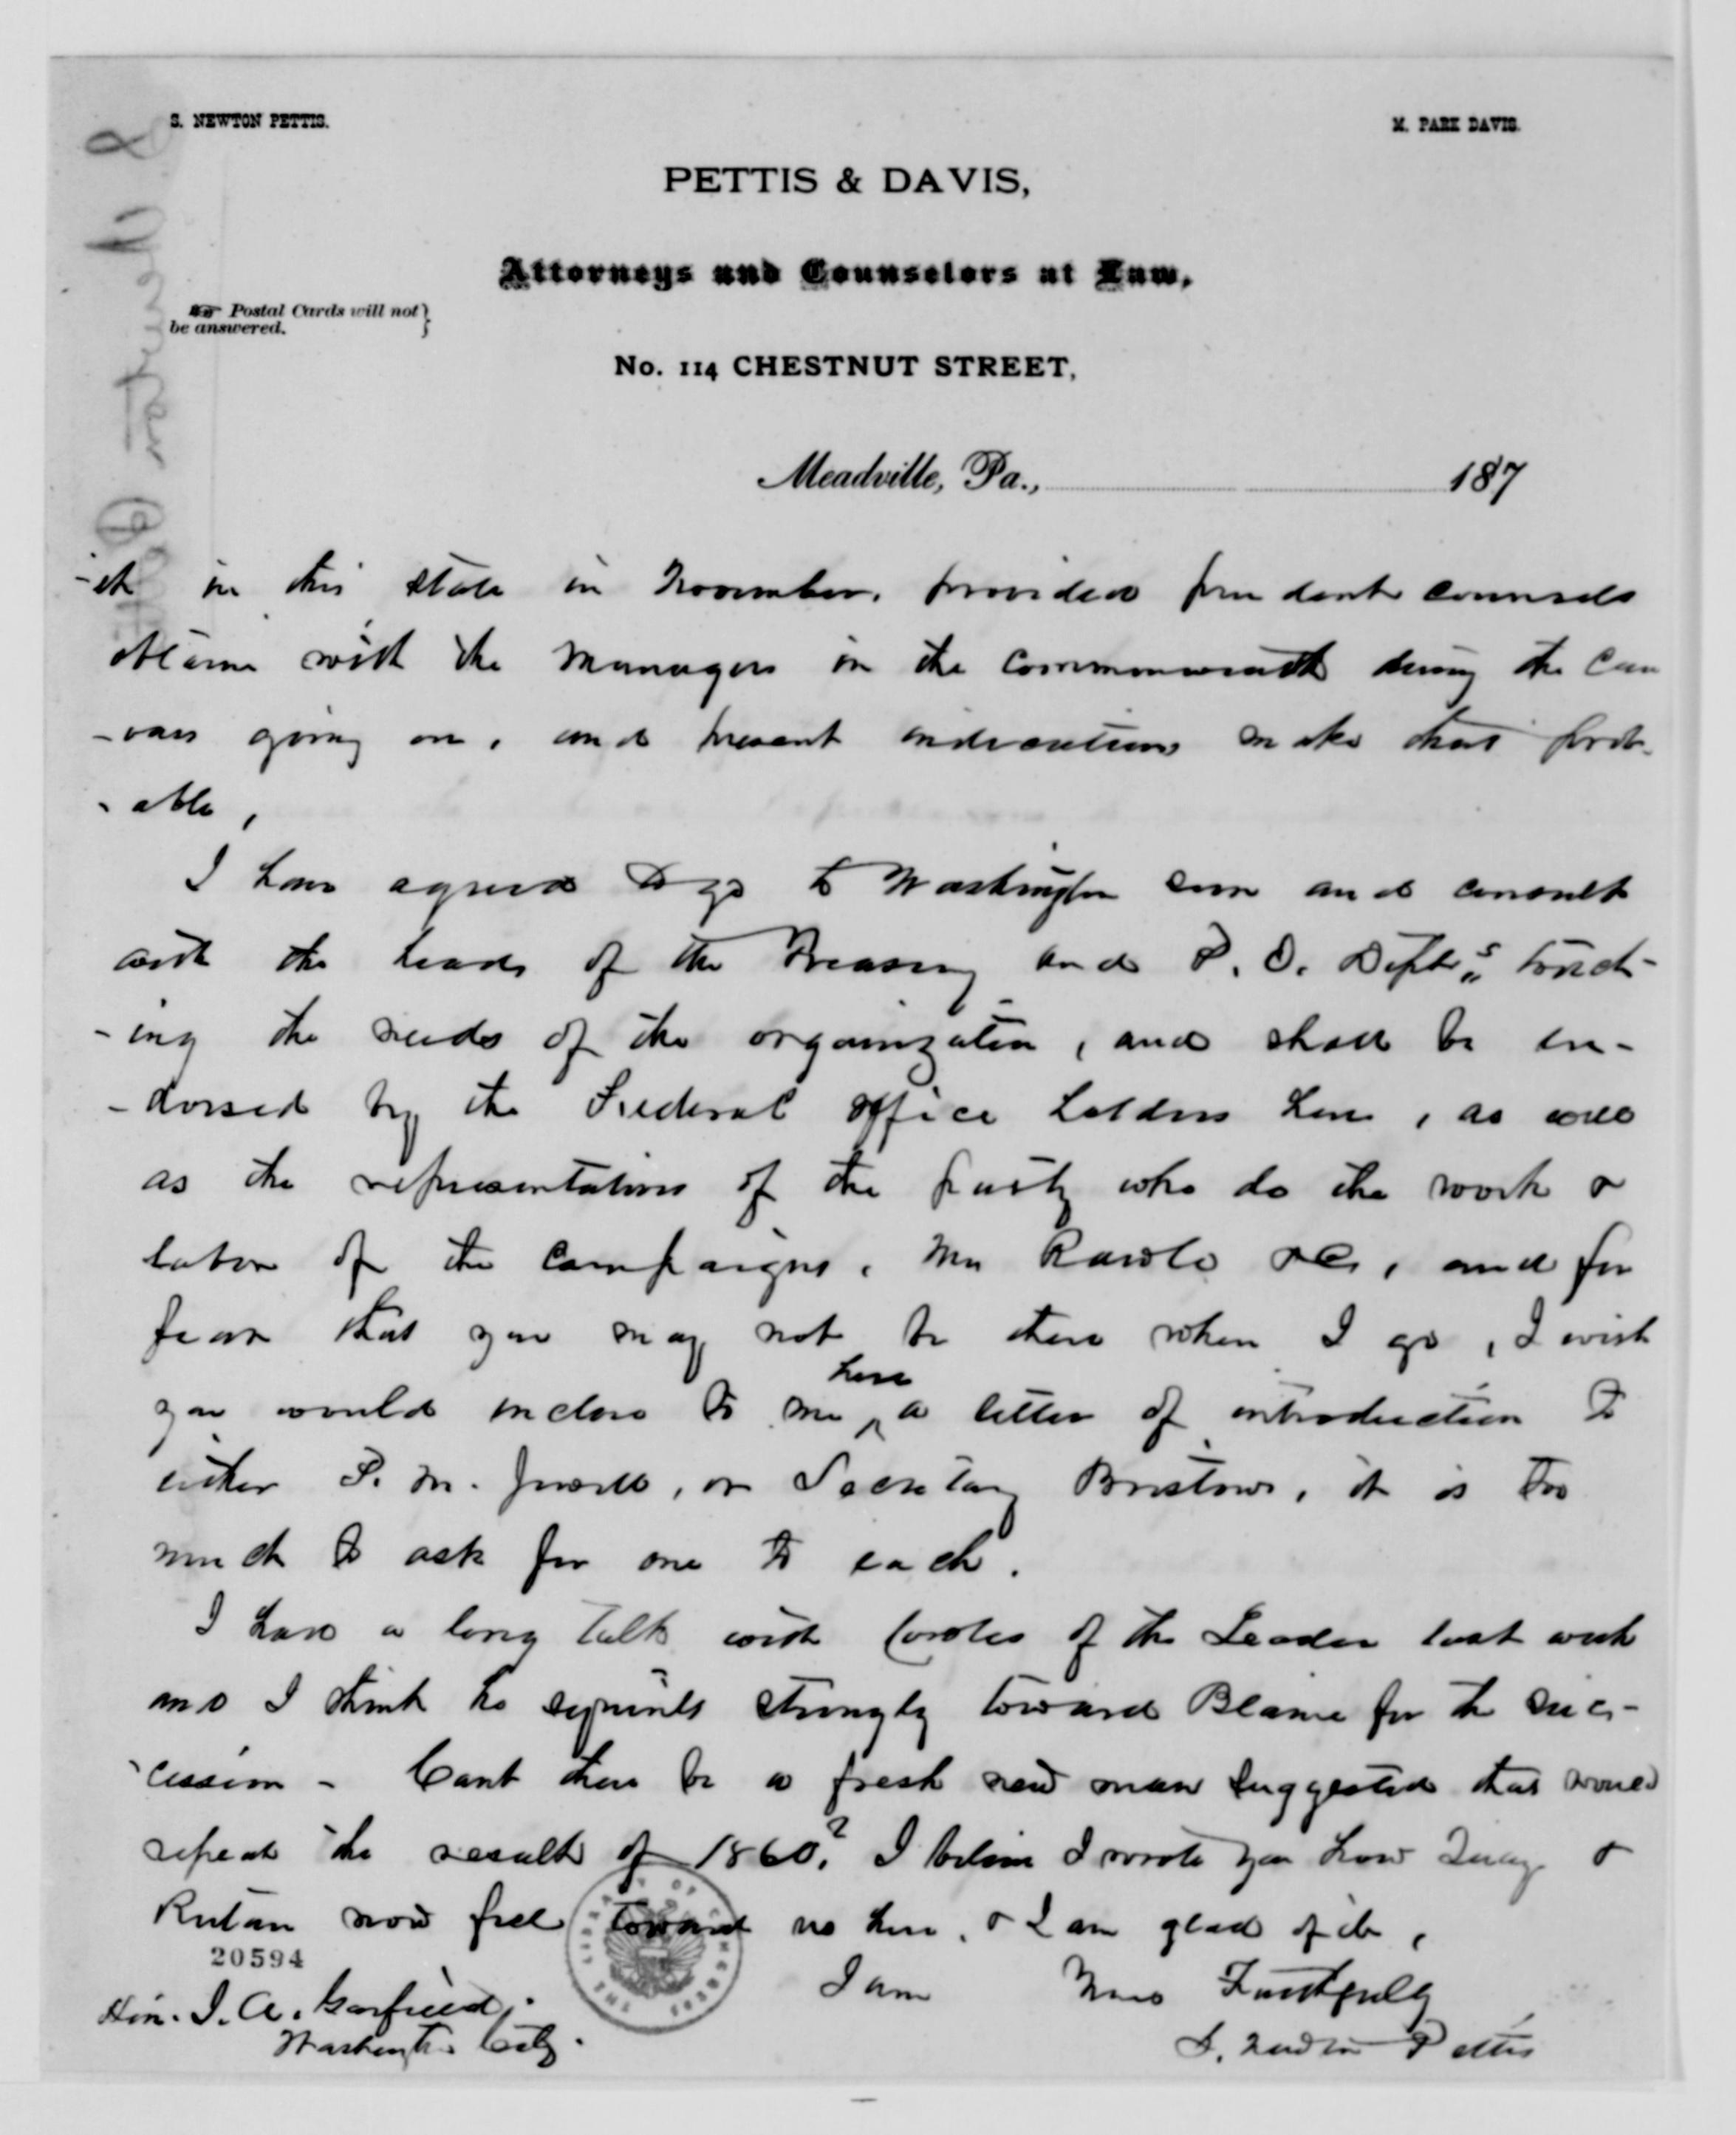 S. NEWTON PETTIS.
M. PARK DAVIS.
PETTIS & DAVIS,
Attorneys and Counselors at Law,
Postal Cards will not
be answered.
No. 114 CHESTNUT STREET,
Meadville, Pa., 187
in this state in November, provided prudent counsels
obtain with the managers in the commonwealth during the can
-vass going on, and present indications make that prob-
-able,
I have agreed to go to Washington soon and consult
with the heads of the Treasury and P. O. Dept's touch-
-ing the needs of the organization, and shall be en-
-dorsed by the Federal office holders here, as well
as the representatives of the party who do the work &
labor of the campaigns, Mr Rawle &c, and for
fear that you may not be there when I go, I wish
you would inclose to me here a letter of introduction to
either P. M. Jewell, or Secretary Bristow, it is too
much to ask for one to each.
I had a long talk with Cowles of the Leader last week
and I think he squints strongly toward Blaine for the suc-
-cession - Cant there be a fresh new man suggested that would
repeat the result of 1860? I believe I wrote you how Quay &
Rutan now feel toward us here, & I am glad of it,
20594
I am Yours Faithfully
Hon. J. A. Garfield,
Washington City.
S. Newton Pettis